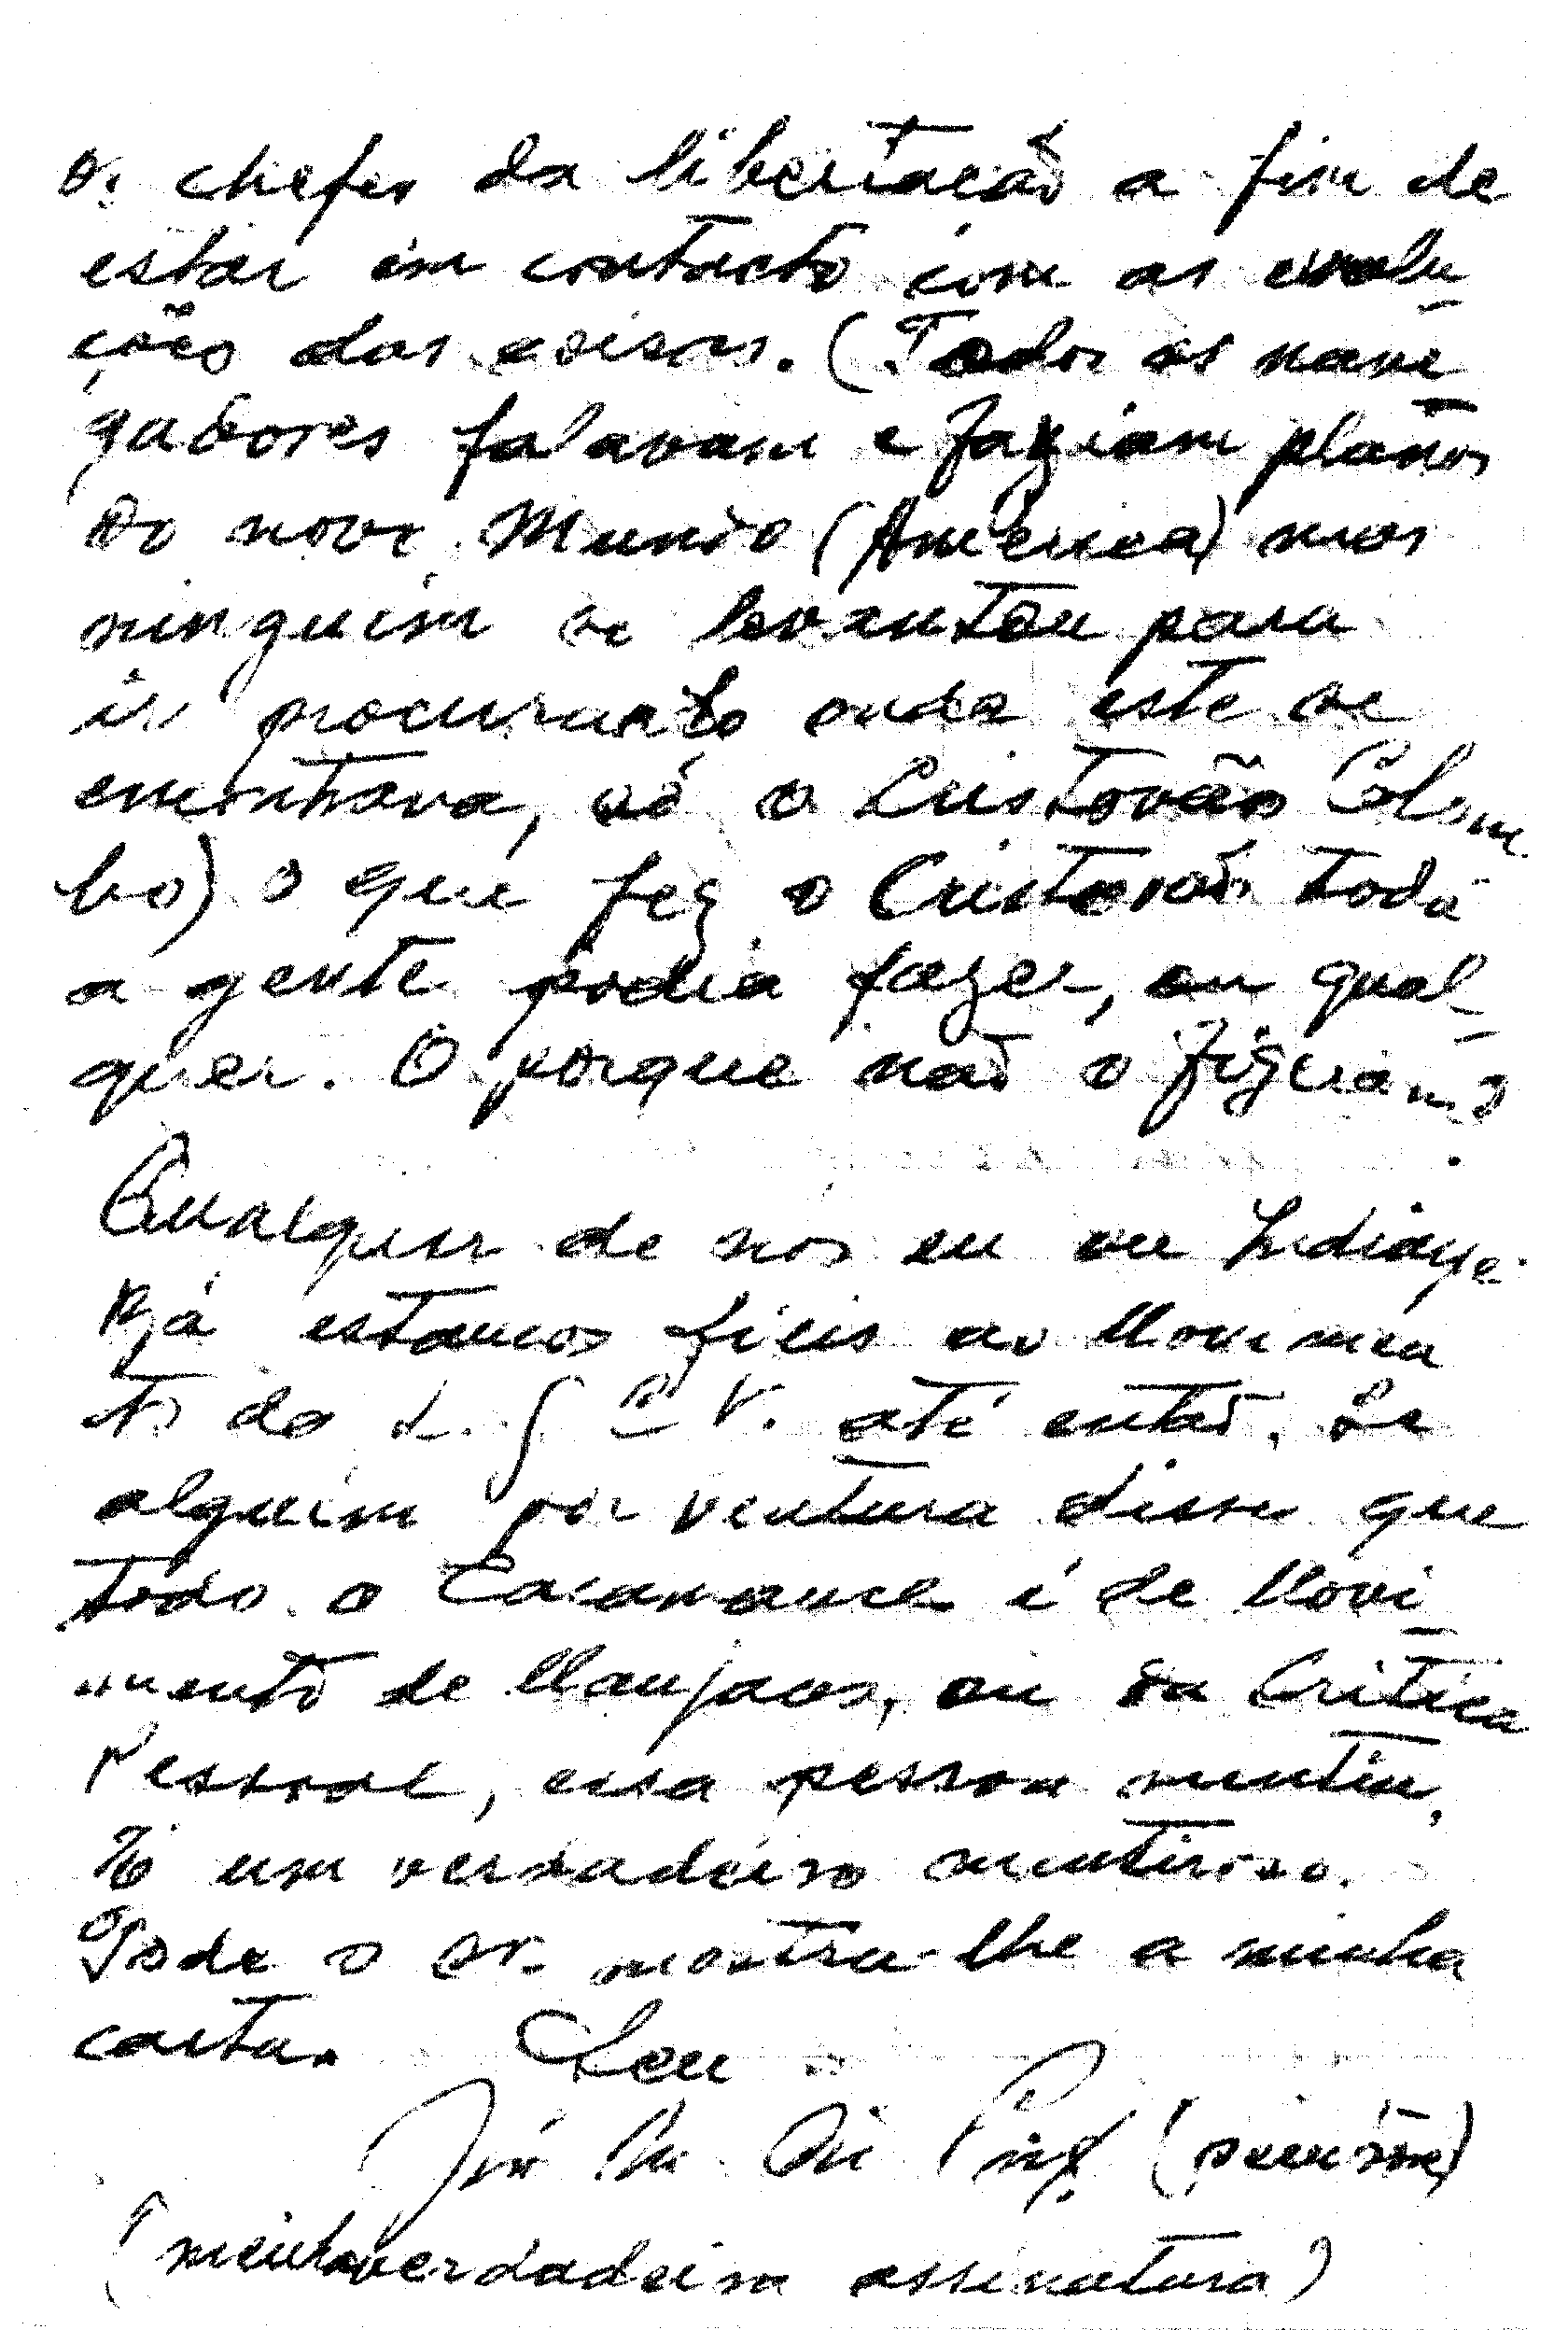 os chefes da libertação a fim de
estar em contacto com as evolu
ções das coisas. (Todos os nave
gadores falavam e faziam planos
do novo Mundo (América) mas
ninguém se levantou para
ir procurando onde este se
encontrava, só o Cristovão Colom
bo) o que fez o Cristovão toda
a gente podia fazer, ou qual-
quer. O porque não o fizeram?
Qualquer de nos eu ou Indiaye
já estamos fieis ao Movimen
to do L. G. e V. até então. Se
alguém por ventura disse que
todo o Casamance é de Movi
mento de Manjacos, ou da Critica
Pessoal, essa pessoa mentiu,
É um verdadeiro mentiroso.
Pode o sr. mostra-lhe a minha
carta. Seu
José (pseudóne)
(minha verdadeira assinatura)